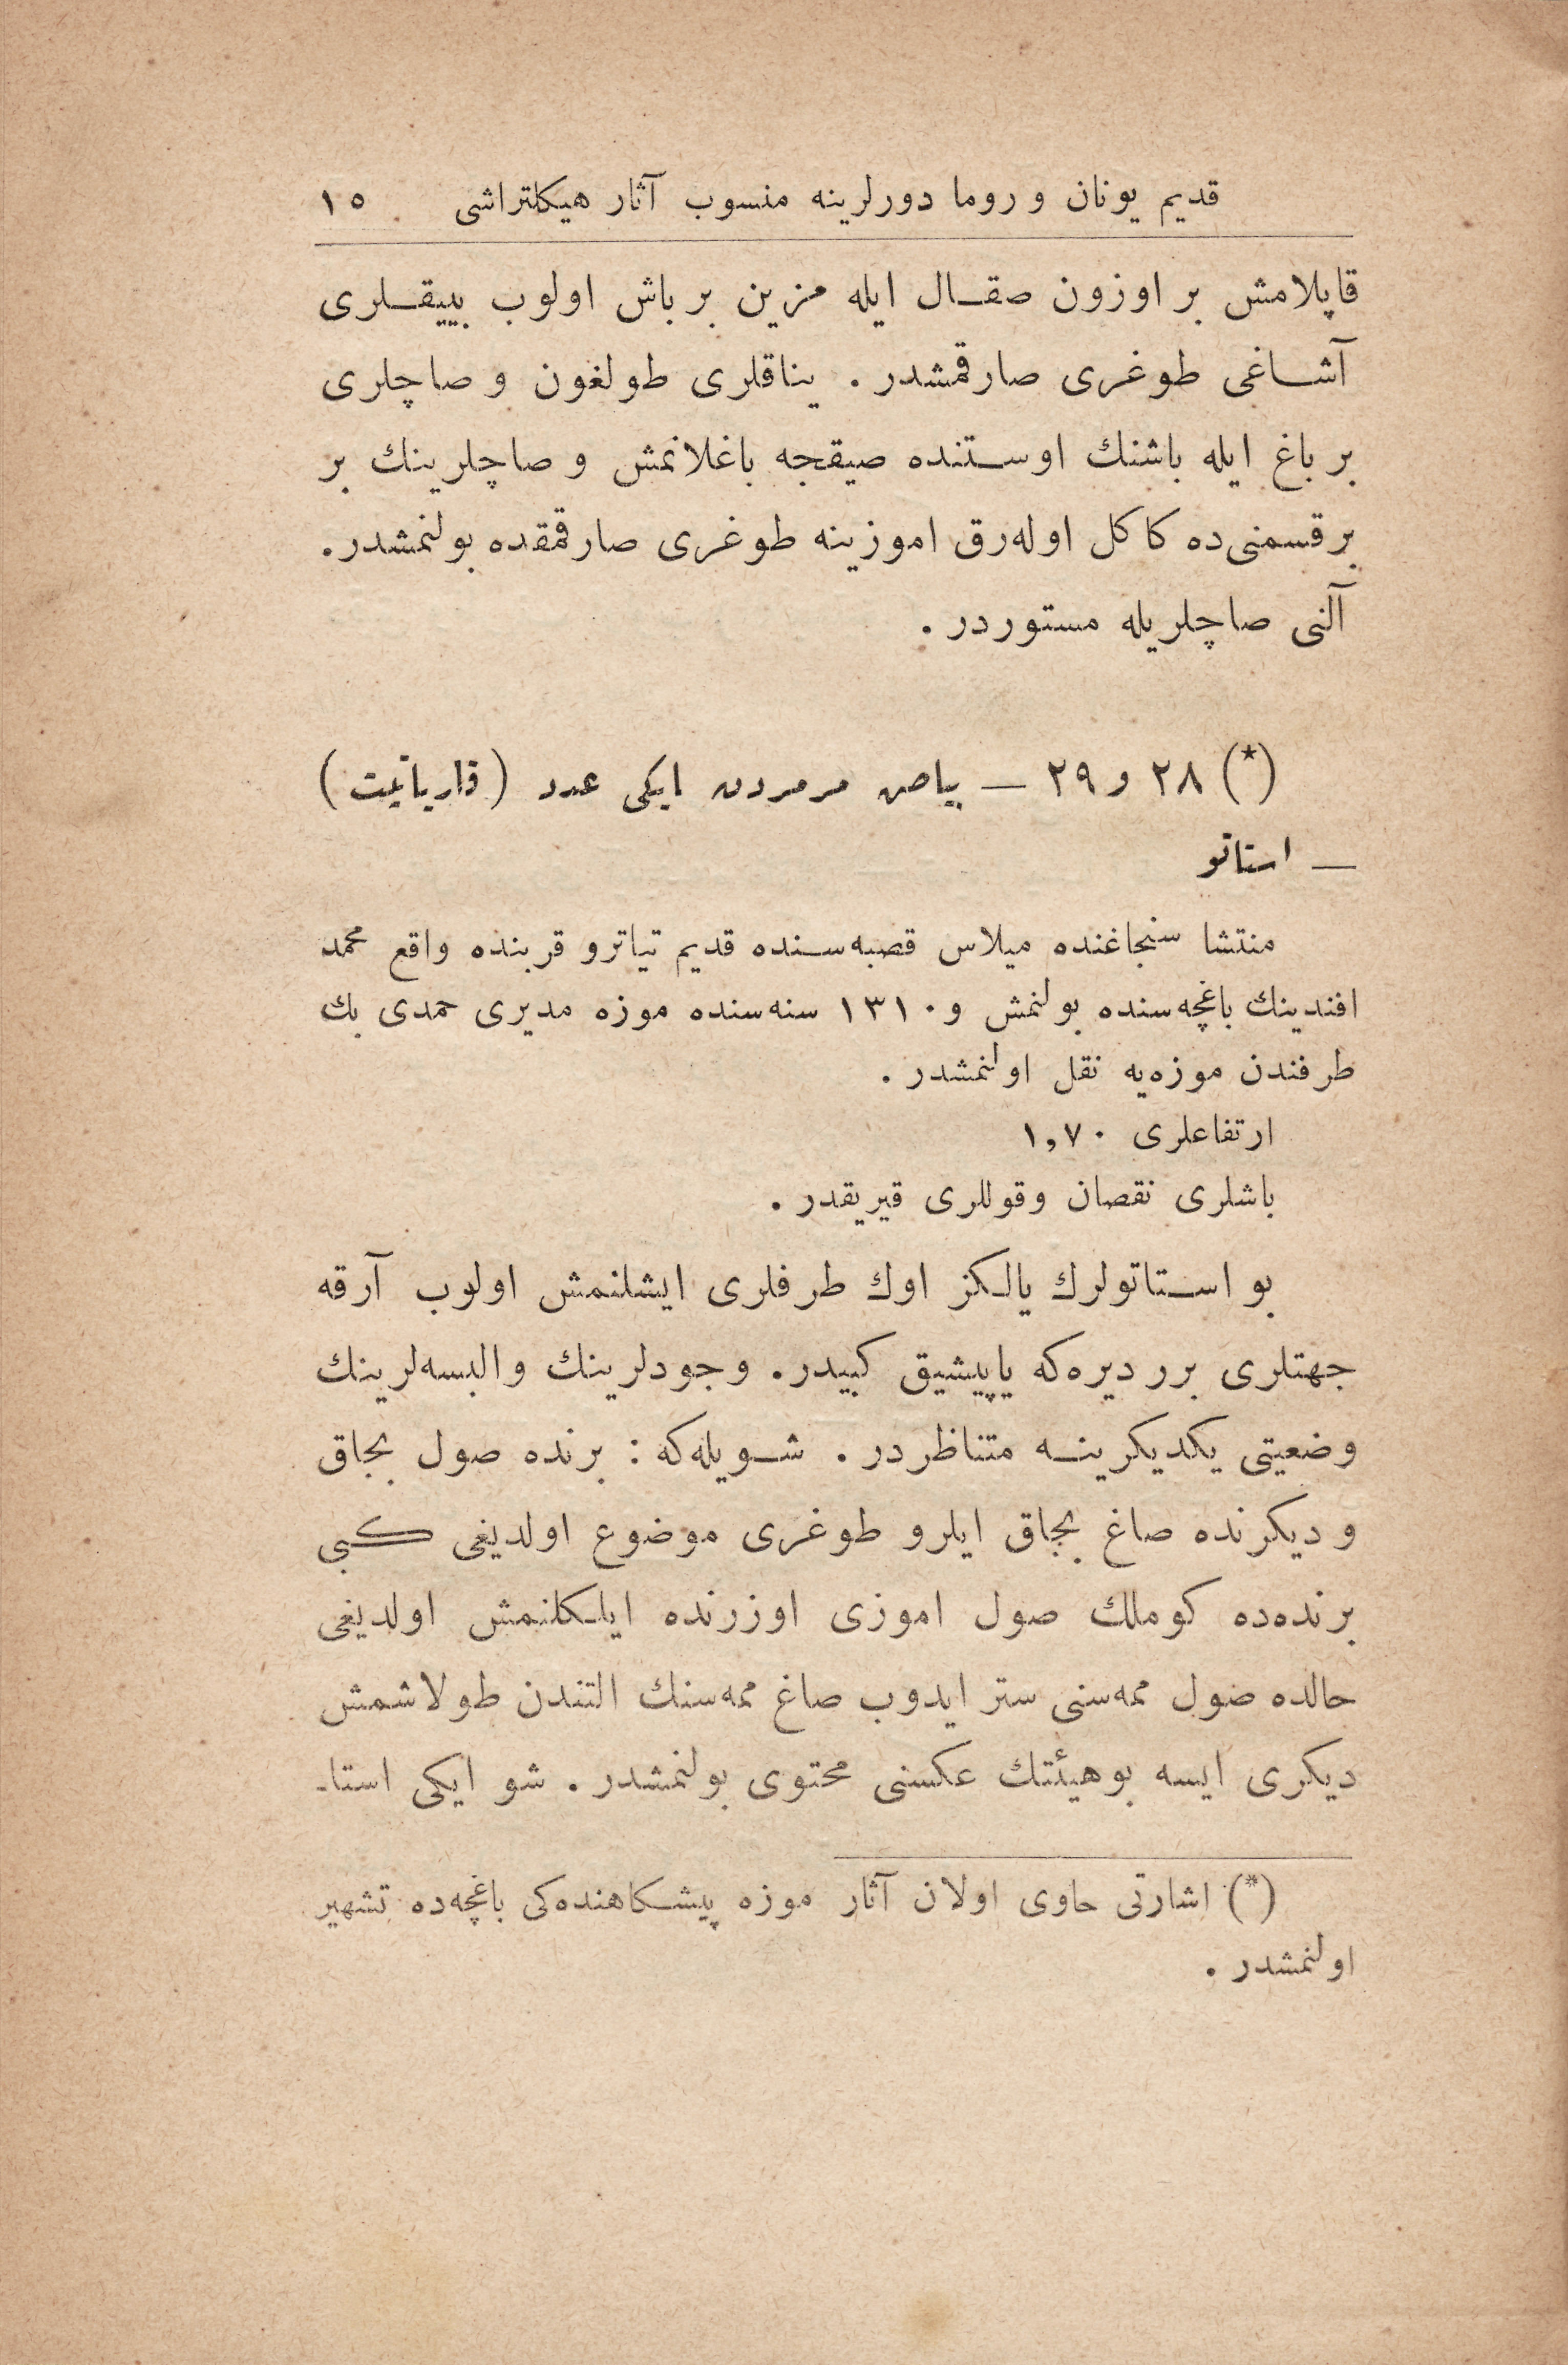 قدیم یونان و روما دورلرینه منسوب آثار هیکلتراشی ١٥
قاپلامش بر اوزون صقال ایله مزین بر باش اولوب بییقلری
آشاغی طوغری صارقمشدر . یناقلری طولغون و صاچلری
بر باغ ایله باشنك اوستنده صیقجه باغلانمش و صاچلرینك بر
بر قسمنی‌ده كاكل اوله‌رق اموزینه طوغری صارقمقده بولنمشدر .
آلنی صاچلریله مستوردر .
(*) ٢٨ و ٢٩ — بیاض مرمردن ایکی عدد (قاریاتیت)
— استاتو
منتشا سنجاغنده میلاس قصبه‌سنده قدیم تیاترو قربنده واقع محمد
افندینك باغچه‌سنده بولنمش و ١٣١٠ سنه‌سنده موزه مدیری حمدی بك
طرفندن موزه‌یه نقل اولنمشدر .
ارتفاعلری ١,٧٠
باشلری نقصان وقوللری قیریقدر .
بو استاتولرك یالکز اوك طرفلری ایشلنمش اولوب آرقه
جهتلری برر دیره‌که یاپیشیق کبیدر . وجودلرینك والبسه‌لرینك
وضعیتی یکدیکرینه متناظردر . شویله‌که : برنده صول بجاق
و دیکرنده صاغ بجاق ایلرو طوغری موضوع اولدیغی کبی
برنده‌ده کوملك صول اموزی اوزرنده ایلکلنمش اولدیغی
حالده صول ممه‌سنی ستر ایدوب صاغ ممه‌سنك التندن طولاشمش
دیکری ایسه بو هیئتك عکسنی محتوی بولنمشدر . شو ایکی استا-
(*) اشارتی حاوی اولان آثار موزه پیشکاهنده‌کی باغچه‌ده تشهیر
اولنمشدر .